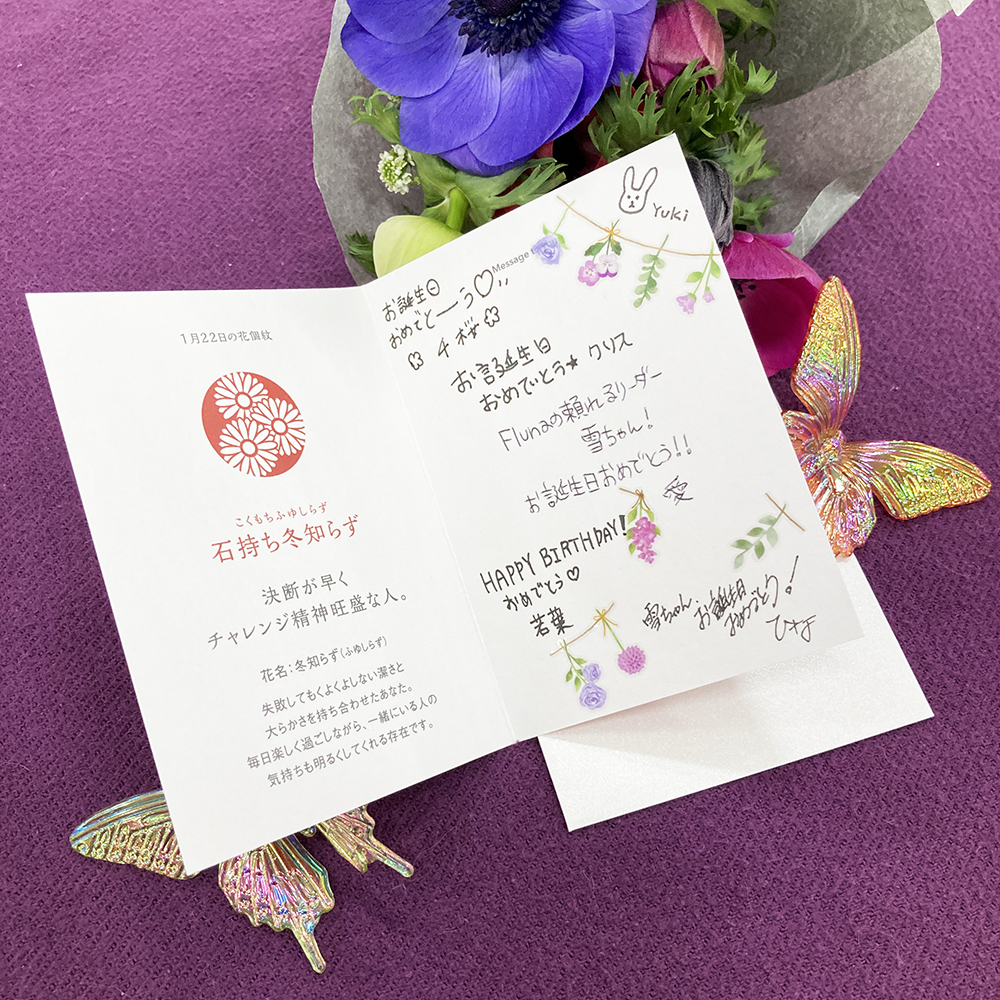 1月22日の花個紋
こくもちふゆしらず
石持ち冬知らず
決断が早く
チャレンジ精神旺盛な人。
花名:冬知らず(ふゆしらず)
失敗してもくよくよしない潔さと
大らかさを持ち合わせたあなた。
毎日楽しく過ごしながら、一緒にいる人の
気持ちも明るくしてくれる存在です。
Yuki
Message
お誕生日
おめでとーう♡
千桜
お誕生日
おめでとう★ クリス
Flunaの頼れるリーダー
雪ちゃん!
お誕生日おめでとう!!
愛
HAPPY BIRTHDAY!
おめでとう♡
若葉
雪ちゃん、お誕生日
おめでとう!
ひなよ